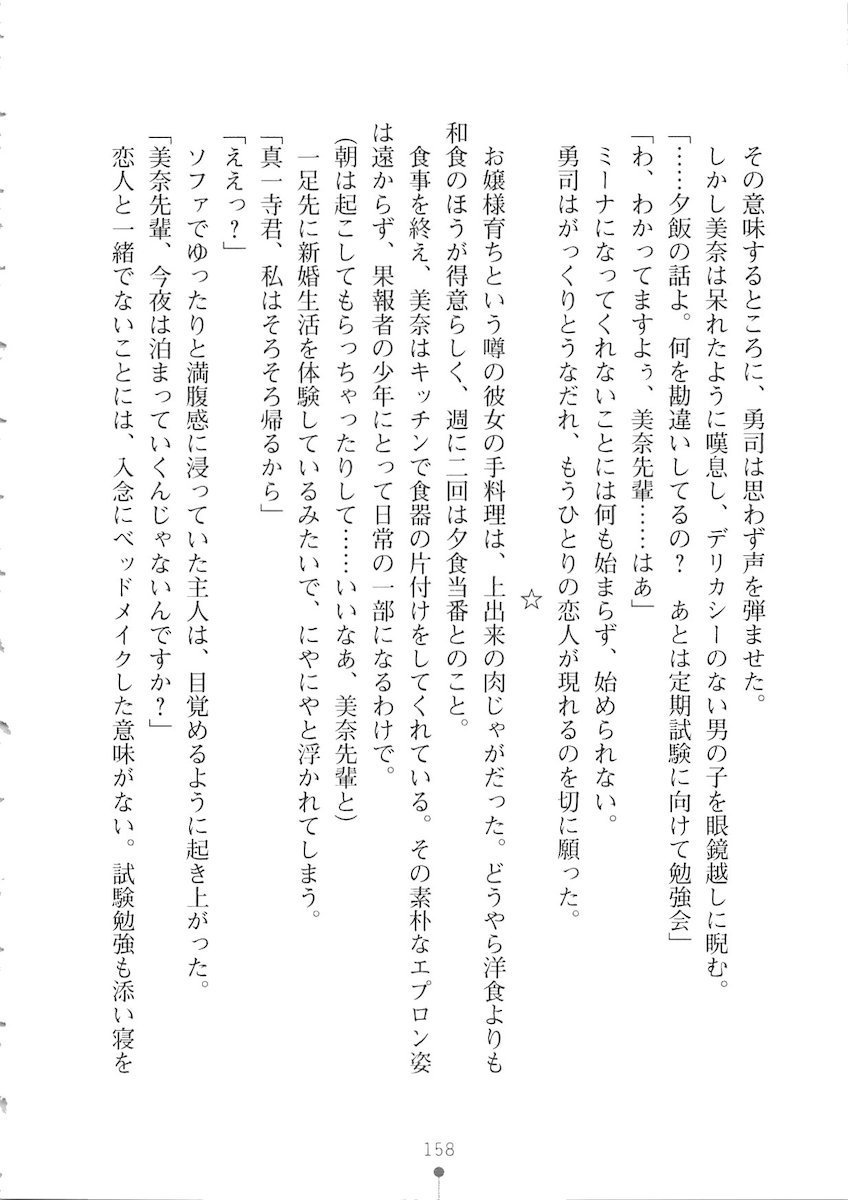 その意味するところに、勇司は思わず声を弾ませた。
しかし美奈は呆れたように嘆息し、デリカシーのない男の子を眼鏡越しに睨む。
「……夕飯の話よ。何を勘違いしてるの？　あとは定期試験に向けて勉強会」
「わ、わかってますよぅ、美奈先輩……はあ」
ミーナになってくれないことには何も始まらず、始められない。
勇司はがっくりとうなだれ、もうひとりの恋人が現れるのを切に願った。
☆
お嬢様育ちという噂の彼女の手料理は、上出来の肉じゃがだった。どうやら洋食よりも
和食のほうが得意らしく、週に二回は夕食当番とのこと。
食事を終え、美奈はキッチンで食器の片付けをしてくれている。その素朴なエプロン姿
は遠からず、果報者の少年にとって日常の一部になるわけで。
(朝は起こしてもらっちゃったりして……いいなあ、美奈先輩と)
一足先に新婚生活を体験しているみたいで、にやにやと浮かれてしまう。
「真一寺君、私はそろそろ帰るから」
「ええっ？」
ソファでゆったりと満腹感に浸っていた主人は、目覚めるように起き上がった。
「美奈先輩、今夜は泊まっていくんじゃないんですか？」
恋人と一緒でないことには、入念にベッドメイクした意味がない。試験勉強も添い寝を
158